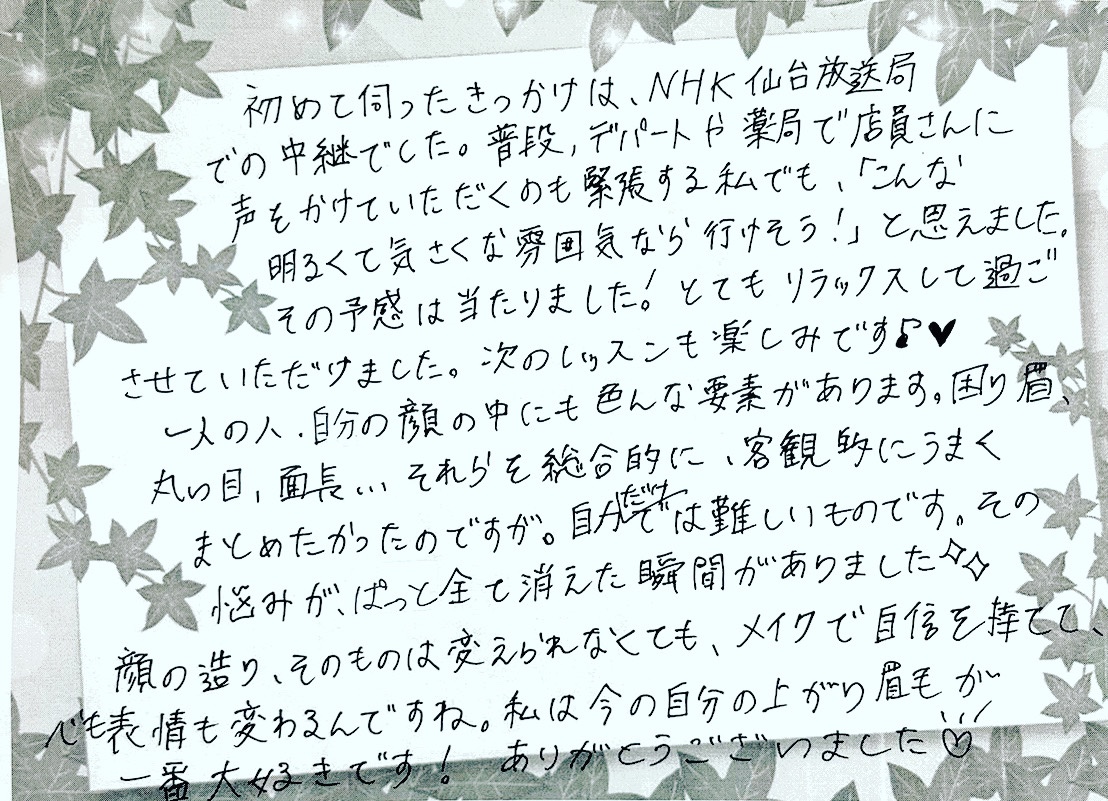 初めて伺ったきっかけは、NHK仙台放送局
での中継でした。普段，デパートや薬局で店員さんに
声をかけていただくのも緊張する私でも、「こんな
明るくて気さくな雰囲気なら行けそう！」と思えました。
その予感は当たりました！とてもリラックスして過ご
させていただけました。次のレッスンも楽しみです♪♥
一人の人、自分の顔の中にも色んな要素があります。困り眉、
丸い目，面長… それらを総合的に、客観的にうまく
まとめたかったのですが。自分だけでは難しいものです。その
悩みが、ぱっと全て消えた瞬間がありました✧✧
顔の造り、そのものは変えられなくても、メイクで自信を持てて、
心も表情も変わるんですね。私は今の自分の上がり眉毛が
一番大好きです！ ありがとうございました♡